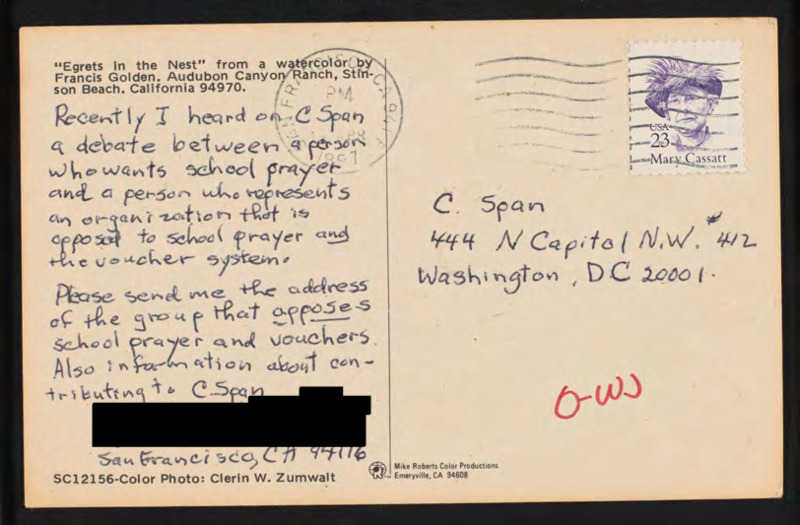 "Egrets in the Nest" from a watercolor by
Francis Golden. Audubon Canyon Ranch, Stin-
son Beach. California 94970.
Recently I heard on C Span
a debate between a person
who wants school prayer
and a person who represents
an organization that is
opposed to school prayer and
the voucher system.
Please send me the address
of the group that opposes
school prayer and vouchers.
Also information about con-
tributing to C.Span
San Francisco, CA 94116
SC12156-Color Photo: Clerin W. Zumwalt
PM
1997
USA
23
Mary Cassatt
C. Span
444 N Capitol N.W. #412
Washington, DC 20001.
O-WJ
Mike Roberts Color Productions
Emeryville, CA 94608